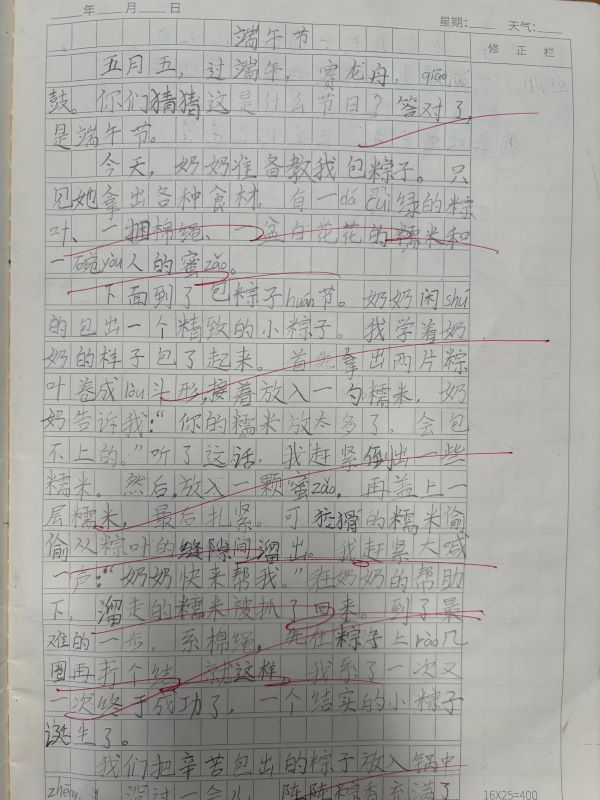 年 月 日 星期: 天气:
修正栏
端午节
五月五，过端午，赛龙舟，qiāo
鼓。你们猜猜这是什么节日？答对了，
是端午节。
今天，奶奶准备教我包粽子。只
见她拿出各种食材，有一dá cuì绿的粽
叶、一捆棉绳、一盆白花花的糯米和
一碗yòu人的蜜zǎo。
下面到了包粽子huán节。奶奶闲shú
的包出一个精致的小粽子。我学着奶
奶的样子包了起来。首先拿出两片粽
叶卷成lòu斗形，接着放入一勺糯米，奶
奶告诉我：“你的糯米放太多了，会包
不上的。”听了这话，我赶紧倒出一些
糯米。然后，放入一颗蜜zǎo，再盖上一
层糯米，最后扎紧。可狡猾的糯米偷
偷从粽叶的缝隙间溜出。我赶紧大喊
一声：“奶奶快来帮我。”在奶奶的帮助
下，溜走的糯米被抓了回来。到了最
难的一步，系棉绳，先在粽子上rào几
圈再打个结，就这样，我系了一次又
一次终于成功了，一个结实的小粽子
诞生了。
我们把辛苦包出的粽子放入锅中
zhēng 没过一会儿，阵阵粽香充满了
16X25=400